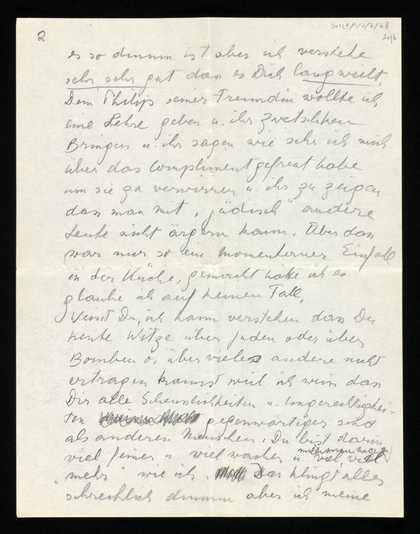 2
es so dumm ist aber ich verstehe
sehr sehr gut dass es Dich langweilt.
Dem Philip seiner Freundin wollte ich
eine Lehre geben u. ihr
Bringen u. ihr sagen wie sehr ich mich
über das Compliment gefreut habe
um sie zu verwirren u. ihr zu zeigen
dass man mit "jüdisch" andere
Leute nicht ärgern kann. Aber das
war nur so ein momentener Einfall
in der Küche, gemacht hätte ich es
glaube ich auf keinen Fall.
Weisst Du, ich kann verstehen dass Du
keine Witze über Juden oder über
Bomben o. über vieles andere nicht
ertragen kannst weil ich weiss dass
Dir alle Scheusslichkeiten u. Ungerechtigkei-
ten gegenwärtiger sind
als anderen Menschen. Du bist darin
viel feiner u. viel wacher u. viel, viel
"mehr" wie ich. Das klingt alles
schrecklich dumm aber ich meine